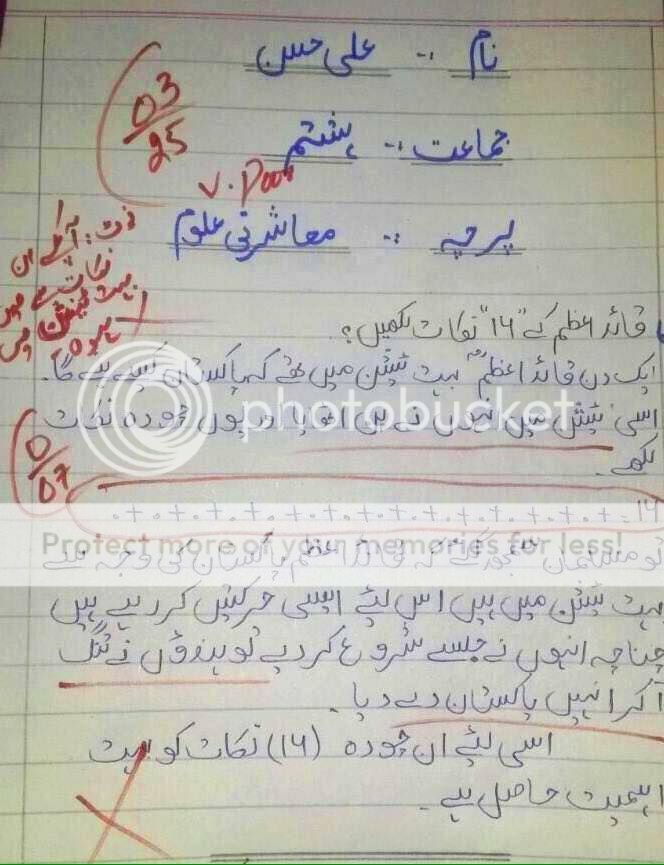 نام :- علی حسن
03/25
جماعت :- ہشتم
V. Poor
پرچہ :- معاشرتی علوم
نوٹ: آپکے ان
نکات سے میں
بہت ٹینشن میں
ہوں
قائد اعظم کے "14" نکات لکھیں؟
ایک دن قائد اعظمؒ بہت ٹینشن میں تھے کہ پاکستان کیسے بنے گا۔
اسی ٹینشن میں انہوں نے پن اٹھایا اور یوں چودہ نکات
لکھے۔
0/07
14 = ۰+۰+۰+۰+۰+۰+۰+۰+۰+۰+۰+۰+۰+۰
photobucket
Protect more of your memories for less!
تو مسلمان سمجھ گئے کہ قائد اعظم پاکستان کی وجہ سے
بہت ٹینشن میں ہیں اس لئے ایسی حرکتیں کر رہے ہیں
چناچہ انہوں نے جلسے شروع کر دیے تو ہندؤں نے تنگ
آ کر انہیں پاکستان دے دیا۔
اسی لئے ان چودہ (14) نکات کو بہت
اہمیت حاصل ہے۔